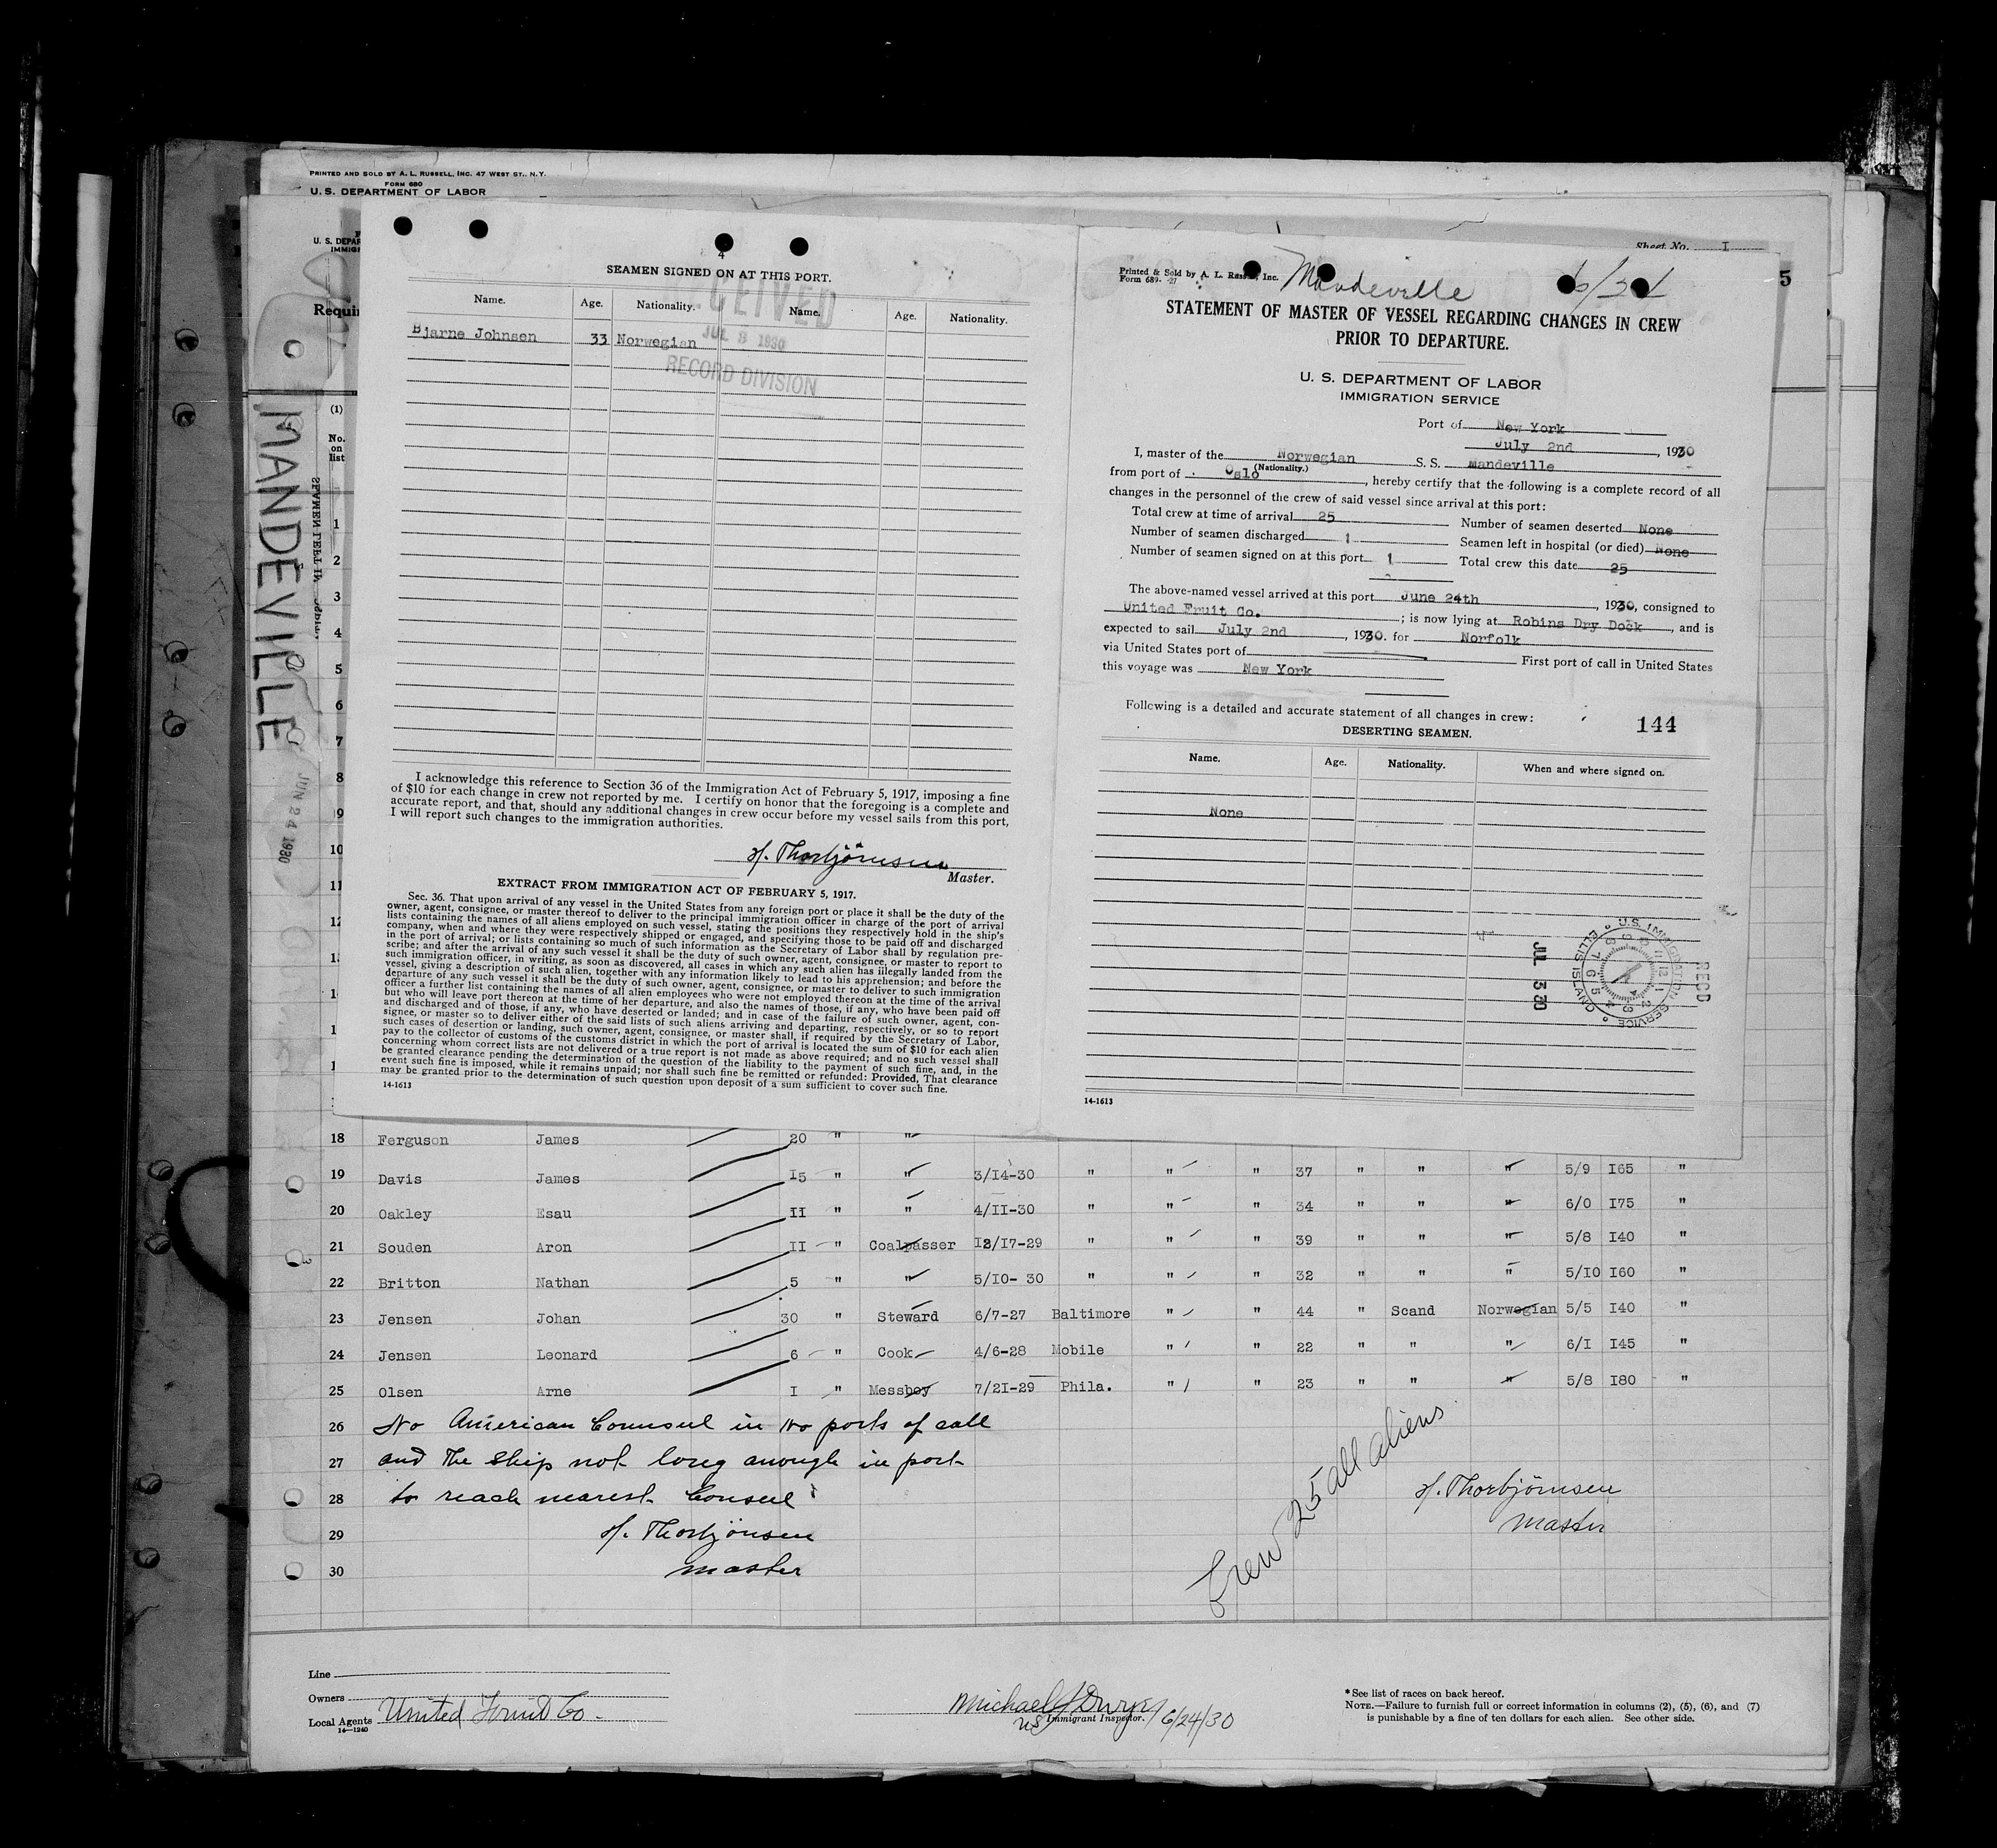 PRINTED AND SOLD BY A. L. RUSSELL, INC. 47 WEST ST., N.Y.
FORM 680
U. S. DEPARTMENT OF LABOR
U. S. DEPAR
IMMIG
Requi
(1)
No.
on
list
SEAMEN LEFT IN
MANDEVILLE
JUN 24 1930
Sheet No. I
5
4
SEAMEN SIGNED ON AT THIS PORT.
Name. Age. Nationality. Name. Age. Nationality.
Bjarne Johnsen 33 Norwegian
CEIVED
JUL 3 1930
RECORD DIVISION
I acknowledge this reference to Section 36 of the Immigration Act of February 5, 1917, imposing a fine
of $10 for each change in crew not reported by me. I certify on honor that the foregoing is a complete and
accurate report, and that, should any additional changes in crew occur before my vessel sails from this port,
I will report such changes to the immigration authorities.
H. Thorbjörnsen
Master.
EXTRACT FROM IMMIGRATION ACT OF FEBRUARY 5, 1917.
Sec. 36. That upon arrival of any vessel in the United States from any foreign port or place it shall be the duty of the
owner, agent, consignee, or master thereof to deliver to the principal immigration officer in charge of the port of arrival
lists containing the names of all aliens employed on such vessel, stating the positions they respectively hold in the ship's
company, when and where they were respectively shipped or engaged, and specifying those to be paid off and discharged
in the port of arrival; or lists containing so much of such information as the Secretary of Labor shall by regulation pre-
scribe; and after the arrival of any such vessel it shall be the duty of such owner, agent, consignee, or master to report to
such immigration officer, in writing, as soon as discovered, all cases in which any such alien has illegally landed from the
vessel, giving a description of such alien, together with any information likely to lead to his apprehension; and before the
departure of any such vessel it shall be the duty of such owner, agent, consignee, or master to deliver to such immigration
officer a further list containing the names of all alien employees who were not employed thereon at the time of the arrival
but who will leave port thereon at the time of her departure, and also the names of those, if any, who have been paid off
and discharged and of those, if any, who have deserted or landed; and in case of the failure of such owner, agent, con-
signee, or master so to deliver either of the said lists of such aliens arriving and departing, respectively, or so to report
such cases of desertion or landing, such owner, agent, consignee, or master shall, if required by the Secretary of Labor,
pay to the collector of customs of the customs district in which the port of arrival is located the sum of $10 for each alien
concerning whom correct lists are not delivered or a true report is not made as above required; and no such vessel shall
be granted clearance pending the determination of the question of the liability to the payment of such fine, and, in the
event such fine is imposed, while it remains unpaid; nor shall such fine be remitted or refunded: Provided, That clearance
may be granted prior to the determination of such question upon deposit of a sum sufficient to cover such fine.
14-1613
Printed & Sold by A. L. Russ Inc.
Form 689-
Mandeville
STATEMENT OF MASTER OF VESSEL REGARDING CHANGES IN CREW
PRIOR TO DEPARTURE.
U. S. DEPARTMENT OF LABOR
IMMIGRATION SERVICE
Port of New York
July 2nd, 1930
I, master of the Norwegian S. S. Mandeville
(Nationality.)
from port of Oslo, hereby certify that the following is a complete record of all
changes in the personnel of the crew of said vessel since arrival at this port:
Total crew at time of arrival 25 Number of seamen deserted None
Number of seamen discharged 1 Seamen left in hospital (or died) None
Number of seamen signed on at this port 1 Total crew this date 25
The above-named vessel arrived at this port June 24th, 1930, consigned to
United Fruit Co.; is now lying at Robins Dry Dock, and is
expected to sail July 2nd, 1930. for Norfolk
via United States port of First port of call in United States
this voyage was New York
Following is a detailed and accurate statement of all changes in crew:
144
DESERTING SEAMEN.
Name. Age. Nationality. When and where signed on.
None
U. S. IMMIGRATION SERVICE ELLIS ISLAND
RECD
JUL 3 30
14-1613
1
2
3
4
5
6
7
8
9
10
11
12
18 Ferguson James 20 " "
19 Davis James 15 " " 3/14-30 " " " 37 " " " 5/9 165 "
20 Oakley Esau II " " 4/II-30 " " " 34 " " " 6/0 I75 "
21 Souden Aron II " Coalpasser 12/17-29 " " " 39 " " " 5/8 I40 "
22 Britton Nathan 5 " " 5/10- 30 " " " 32 " " " 5/10 I60 "
23 Jensen Johan 30 " Steward 6/7-27 Baltimore " " 44 " Scand Norwegian 5/5 I40 "
24 Jensen Leonard 6 " Cook 4/6-28 Mobile " " 22 " " " 6/I I45 "
25 Olsen Arne I " Messboy 7/2I-29 Phila. " " 23 " " " 5/8 I80 "
26 No American Counsul in two ports of call
27 and the ship not long anough in port
28 to reach nearest Consul
29 H. Thorbjönsen
30 master
Crew 25 all aliens
H. Thorbjörnsen
master
Line
Owners
Local Agents United Fruit Co.
14-1240
Michael J Dwyer
US Immigrant Inspector. 6/24/30
*See list of races on back hereof.
NOTE.—Failure to furnish full or correct information in columns (2), (5), (6), and (7)
is punishable by a fine of ten dollars for each alien. See other side.